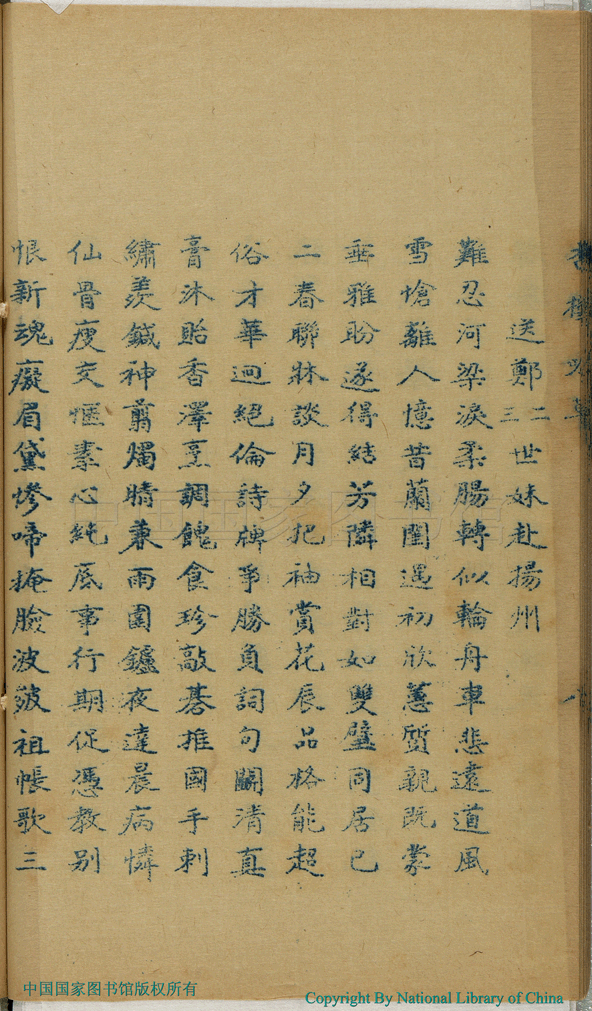 送鄭二三世妹赴揚州
難忍河梁淚柔腸轉似輪舟車悲遠道風
雪愴離人憶昔蘭閨遇初欣蕙質親既蒙
垂雅盼遂得結芳隣相對如雙璧同居已
二春聯牀談月夕把袖賞花辰品格能超
俗才華迥絕倫詩牌爭勝負詞句鬭清真
膏沐貽香澤烹調餽食珍敲碁推國手刺
繡羨鍼神翦燭晴兼雨圍鑪夜達晨病憐
仙骨瘦交愜素心純底事行期促憑教別
恨新魂癡眉黛慘啼掩臉波皴祖帳歌三
八
中国国家图书馆
中国国家图书馆版权所有
Copyright By National Library of China